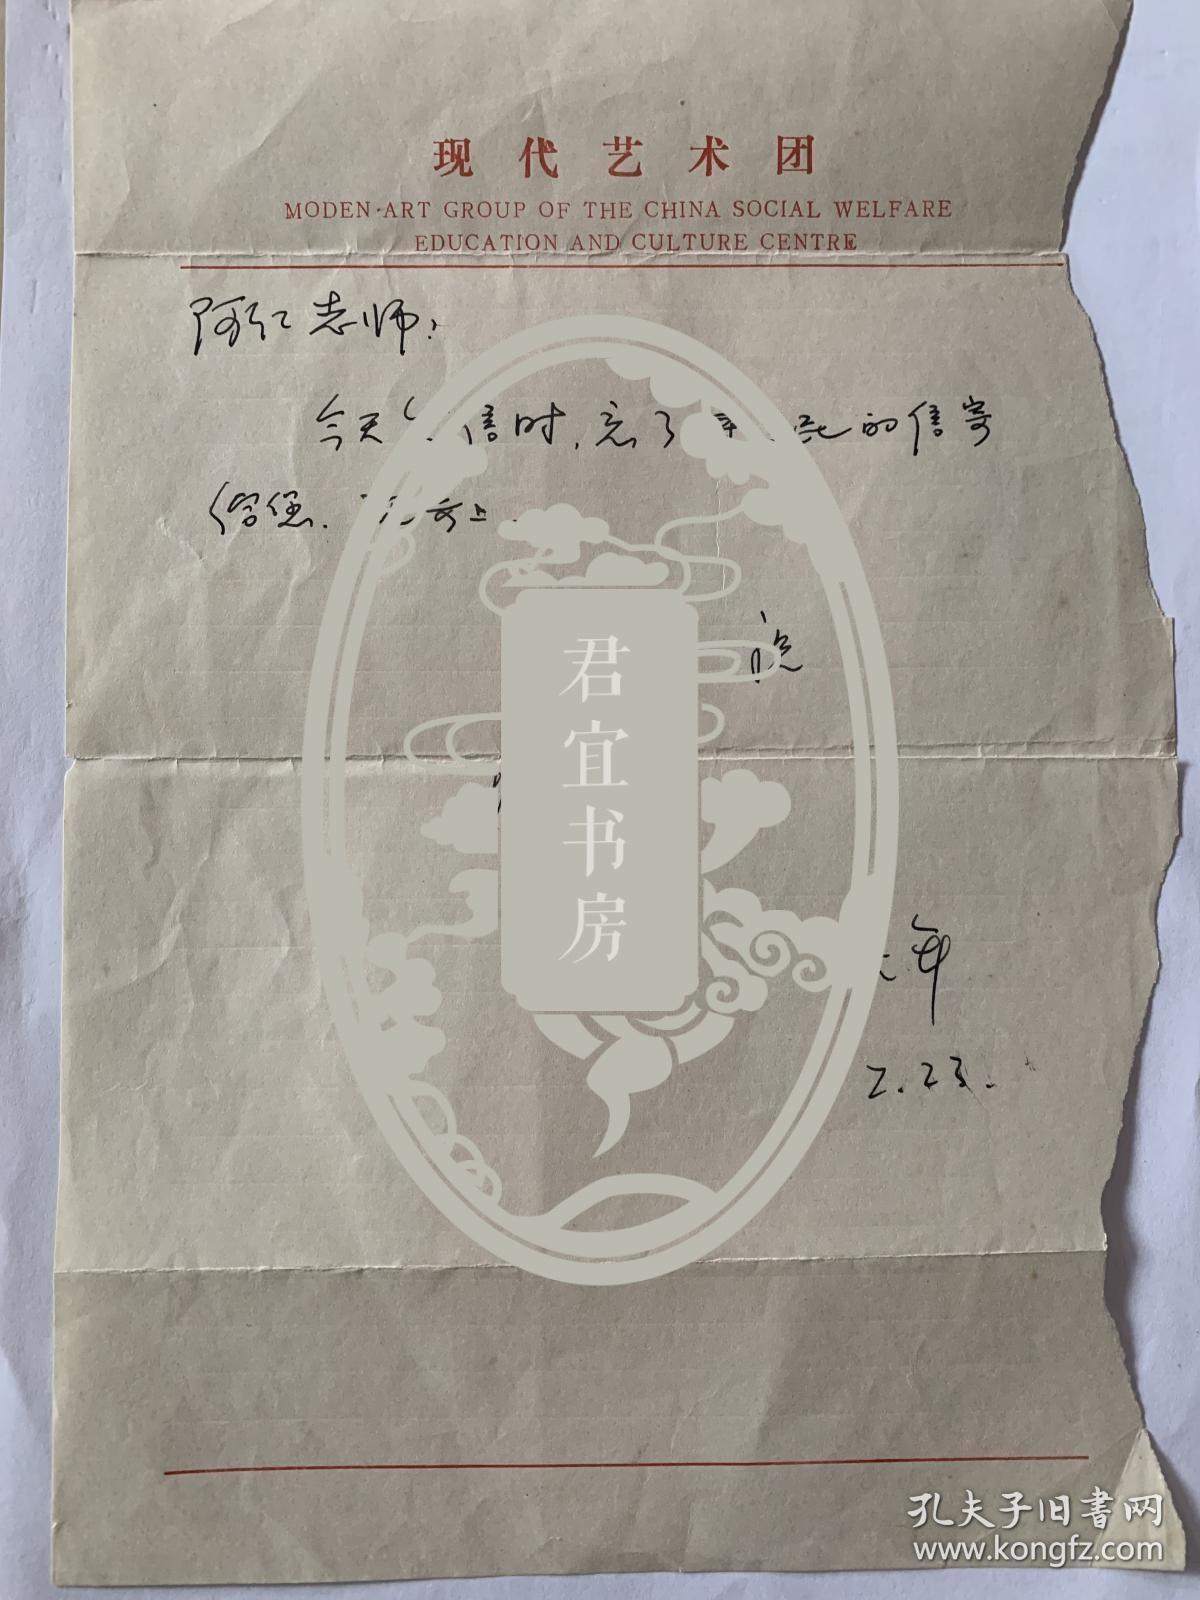 现代艺术团
MODEN·ART GROUP OF THE CHINA SOCIAL WELFARE
EDUCATION AND CULTURE CENTRE
阿红老师：
今天 信时，忘了 的信寄
给您. 上.
君宜书房
年
2.23.
孔夫子旧书网
www.kongfz.com